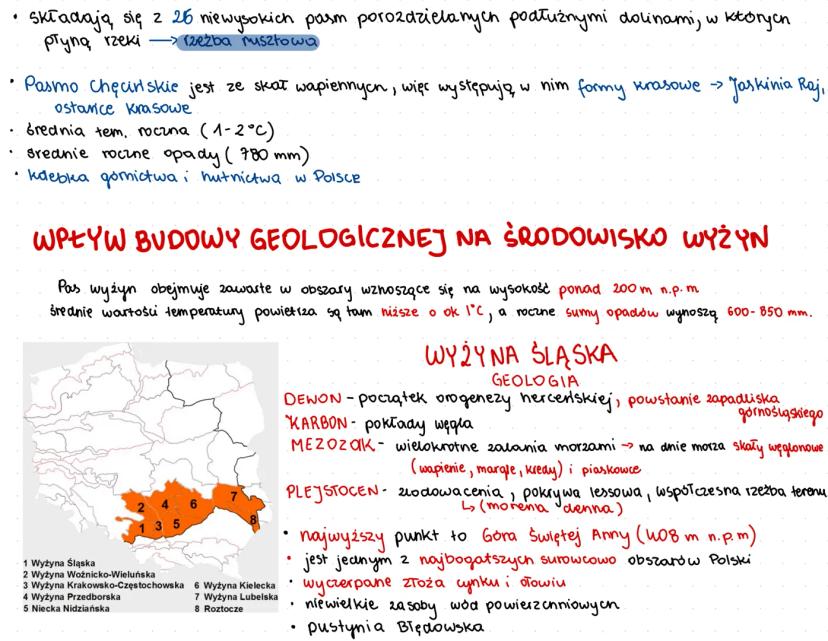 • składają się z 26 niewysokich pasm porozdzielanych podłużnymi dolinami, w których
płyną rzeki → rzeźba rusztowa
• Pasmo Chęcińskie jest ze skał wapiennych, więc występują w nim formy krasowe → Jaskinia Raj,
ostańce krasowe
• średnia tem. roczna (1-2°C)
• średnie roczne opady (780 mm)
• kolebka górnictwa i hutnictwa w Polsce
WPŁYW BUDOWY GEOLOGICZNEJ NA ŚRODOWISKO WYŻYN
Pas wyżyn obejmuje zawarte w obszary wznoszące się na wysokość ponad 200 m n.p.m
średnie wartości temperatury powietrza są tam niższe o ok 1°C, a roczne sumy opadów wynoszą 600-850 mm.
WYŻYNA ŚLĄSKA
GEOLOGIA
DEWON - początek orogenezy herceńskiej, powstanie zapadliska
górnośląskiego
KARBON - pokłady węgla
MEZOZOIK - wielokrotne zalania morzami → na dnie morza skały węglonowe
(wapienie, margle, kredy) i piaskowce
PLEJSTOCEN - zlodowacenia, pokrywa lessowa, współczesna rzeźba terenu
↳ (morena denna)
• najwyższy punkt to Góra Świętej Anny (408 m n.p.m)
• jest jednym z najbogatszych surowcowo obszarów Polski
• wyczerpane złoża cynku i ołowiu
• niewielkie zasoby wód powierzchniowych
• pustynia Błędowska
2 4 6 7
1 3 5 8
1 Wyżyna Śląska
2 Wyżyna Woźnicko-Wieluńska
3 Wyżyna Krakowsko-Częstochowska
4 Wyżyna Przedborska
5 Niecka Nidziańska
6 Wyżyna Kielecka
7 Wyżyna Lubelska
8 Roztocze